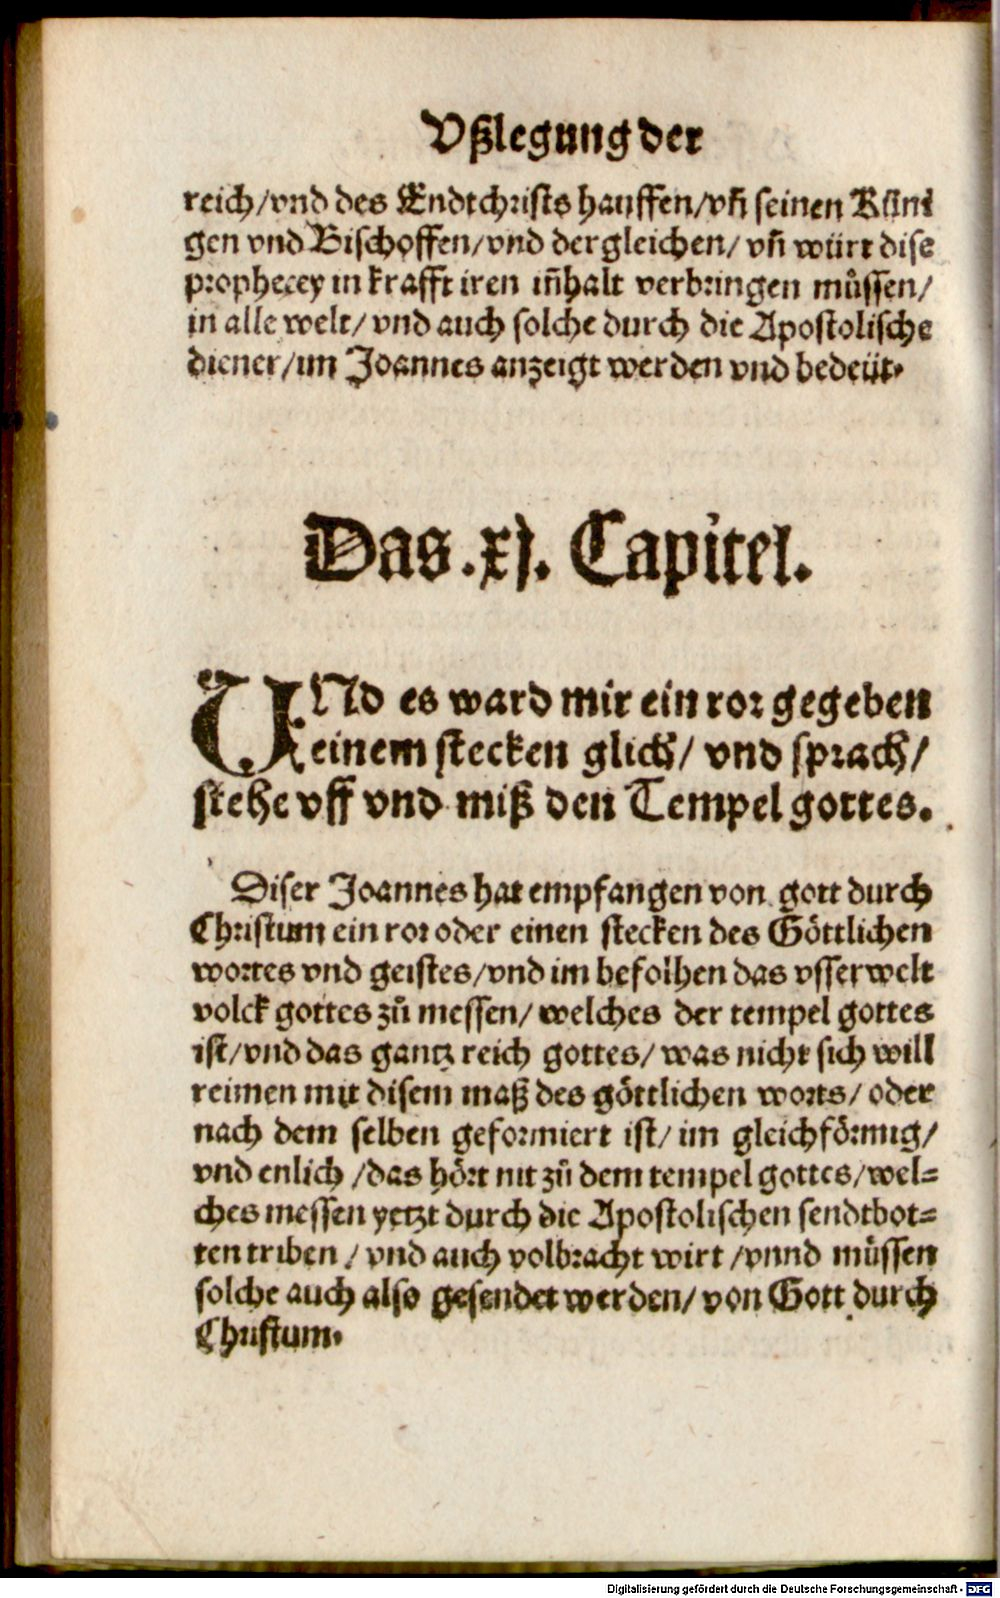 Vßlegung der
reich/vnd des Endtchrists hauffen/vn̄ seinen Küni
gen vnd Bischoffen/vnd dergleichen/ vn̄ würt dise
prophecey in krafft iren in̄halt verbringen müssen/
in alle welt/ vnd auch solche durch die Apostolische
diener/im Joannes anzeigt werden vnd bedeüt.
Das .xj. Capitel.
VNd es ward mir ein ror gegeben
einem stecken glich/ vnd sprach/
stehe vff vnd miß den Tempel gottes.
Diser Joannes hat empfangen von gott durch
Christum ein ror oder einen stecken des Göttlichen
wortes vnd geistes/vnd im befolhen das vsserwelt
volck gottes zů messen/ welches der tempel gottes
ist/vnd das gantz reich gottes/ was nicht sich will
reimen mit disem maß des göttlichen worts/ oder
nach dem selben geformiert ist/ im gleichförmig/
vnd enlich /das hört nit zů dem tempel gottes/wel=
ches messen yetzt durch die Apostolischen sendtbot=
ten triben / vnd auch volbracht wirt /vnnd müssen
solche auch also gesendet werden/ von Gott durch
Christum.
Digitalisierung gefördert durch die Deutsche Forschungsgemeinschaft - DFG